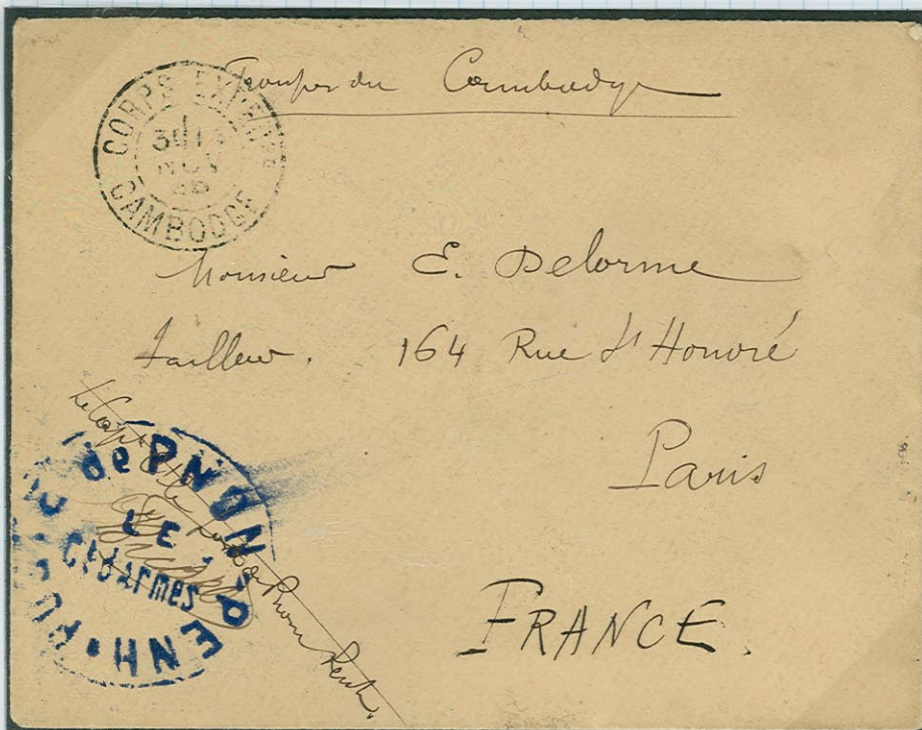 Troupes du Cambodge
CORPS EXPRE
30
NOV
CAMBODGE
Monsieur E. Delorme
Tailleur. 164 Rue St Honoré
Paris
FRANCE.
de PNON-PENH
LE
Ct d'armes
Pnom Penh.